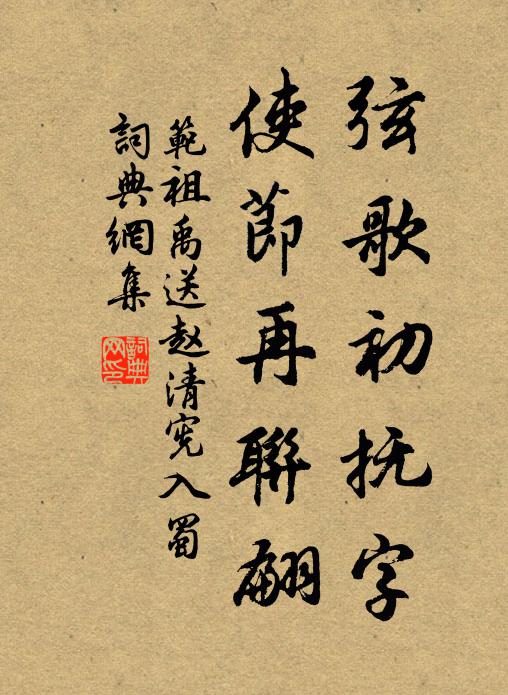 弦歌初抚字
使節再聯翩
範祖禹送赵清宪入蜀
詞典網集
詞典网印